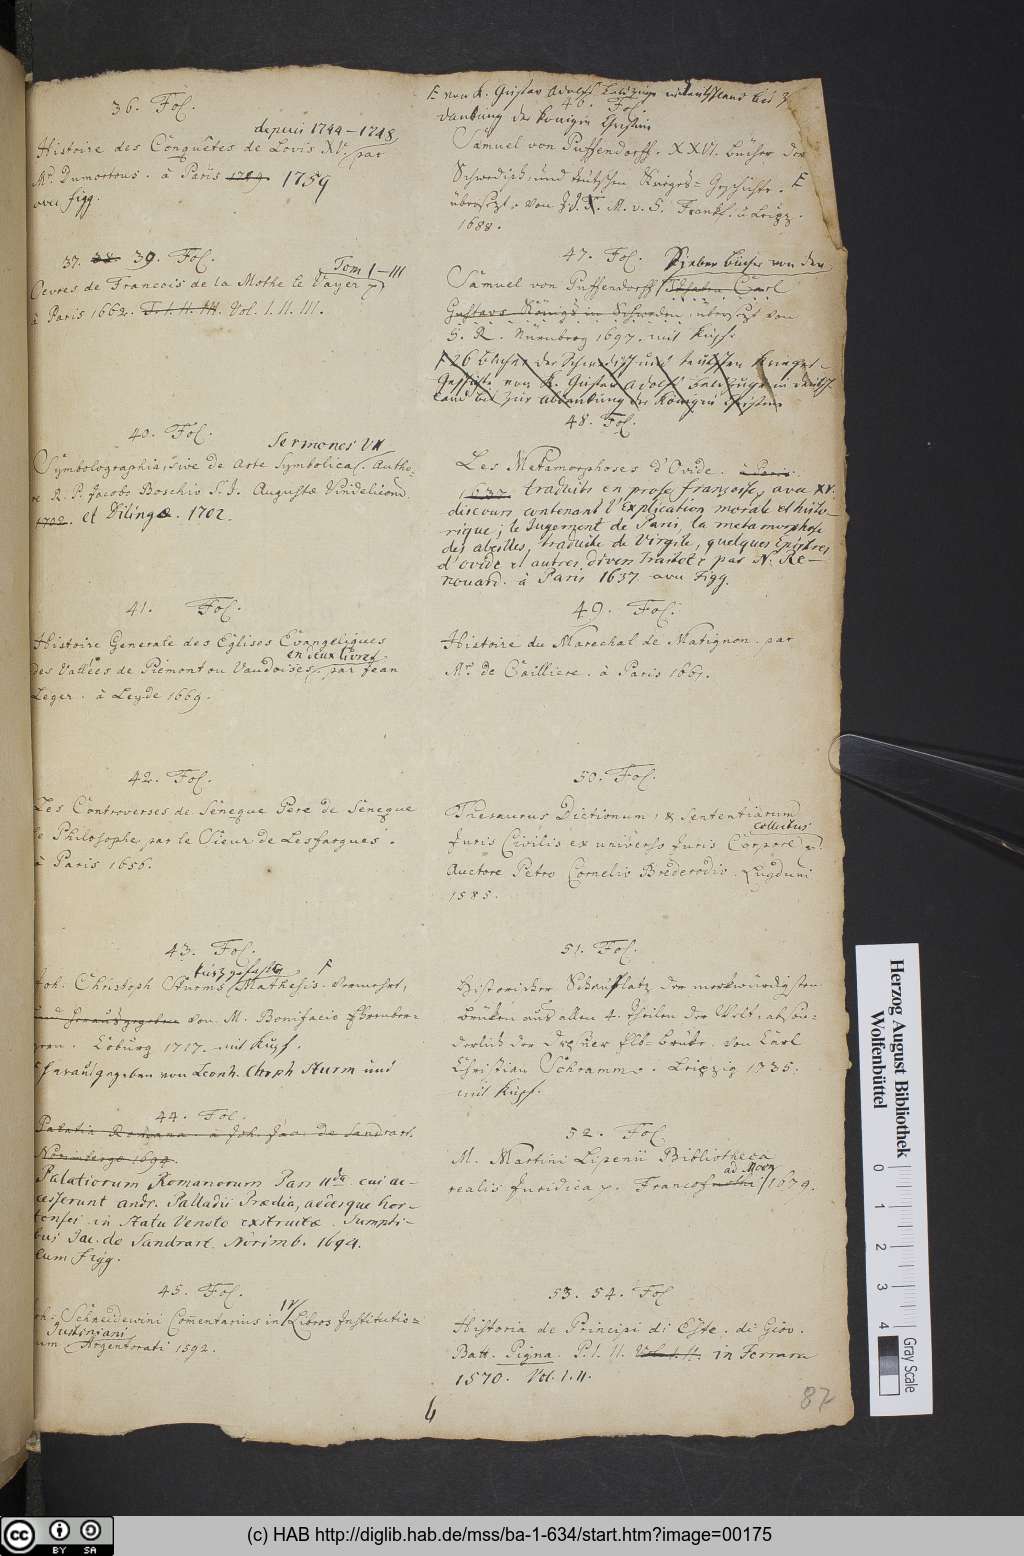 36. Fol.
depuis 1744-1748
Histoire des Conquetes de Lovis XV. par
Mr. Dumortous. à Paris 1759
avec figg.
37. 38. 39. Fol.
Tom I-III
Oevres de Francois de la Mothe le Vayer
à Paris 1662. T. I. II. III. Vol. I. II. III.
40. Fol.
Sermones VII
Symbolographia, sive de Arte Symbolica. Autho-
re R. P. Jacobo Boschio S. J. Augustæ Vindelicorum
1702. et Dilingæ. 1702.
41. Fol.
Histoire Generale des Eglises Evangeliques
en deux livres
des Vallées de Piemont ou Vaudoises, par Jean
Leger. à Leyde 1669.
42. Fol.
Les Controverses de Séneque Pere de Séneque
le Philosophe, par le Sieur de Lesfargues.
à Paris 1656.
43. Fol.
kurz gefaßte F
Joh. Christoph Sturms Mathesis. vermehrt,
und herausgegeben von M. Bonifacio Ehrenber-
gern. Coburg 1717. mit Kupf.
F herausgegeben von Leonh. Chrph Sturm und
44. Fol.
Palatia Romana. à Joh. Jac. de Sandrart.
Norimbergæ 1694.
Palatiorum Romanorum Pars IIda cui ac-
cesserunt andr. Palladii Prædia, aedesque hor-
tenses in Statu Veneto exstructæ. Sumpti-
bus Jac. de Sandrart. Norimb. 1694.
cum figg.
45. Fol.
IV
Joh. Schneidewini Commentarius in Libros Institutio=
Justiniani
num Argentorati 1592.
F von K. Gustav Adolfs Feldzuge in Deutschland bis z
46. Fol.
dankung der Königin Christine
Samuel von Puffendorff. XXVI. Bücher der
Schwedisch- und teutschen Krieges= Geschichte. F
übersezt, von J. J. M. v. S. Frankf. u. Leipz.
1688.
47. Fol. Sieben Bücher von den
Samuel von Puffendorff Thaten Carl
Gustavs Königs in Schweden, übersezt von
S. R. Nürnberg 1697. mit Kupf.
F 26 Bücher der Schwedisch und teutschen Krieges-
Geschichte von K. Gustav Adolfs Feldzuge in Deutsch-
land bis zur abdankung der Königin Christine
48. Fol.
Les Metamorphoses d'Ovide. à Paris
1637. traduits en prose françoise, avec XV.
discours contenant l'Explication morale et histo-
rique; le Jugement de Paris, la metamorphose
des abeilles, traduite de Virgile, quelques Epistres
d'ovide et autres divers traités par N. Re-
nouard. à Paris 1637. avec Figg.
49. Fol.
Histoire du Marechal de Matignon. par
Mr. de Cailliere. à Paris 1661.
50. Fol.
Thesaurus Dictionum, & Sententiarum
collectus
Juris Civilis ex universo Juris Corpore
Auctore Petro Cornelio Brederodio. Lugduni
1585.
51. Fol.
Historischer Schauplatz der merkwürdigsten
Brüken aus allen 4. Theilen der Welt, abson-
derlich der Dreßdner Elb-Brüke. von Carl
Christian Schramm. Leipzig 1735.
mit Kupf.
52. Fol.
M. Martini Lipenii Bibliotheca
ad Moen
realis Juridica p. Francofurti 1679.
53. 54. Fol.
Historia de Principi di Este. di Giov.
Batt. Pigna. P. I. II. Vol. I. II. in Ferrara
1570. Vol. I. II.
87
Herzog August Bibliothek
Wolfenbüttel
0 1 2 3 4
Gray Scale
cc BY SA
(c) HAB http://diglib.hab.de/mss/ba-1-634/start.htm?image=00175